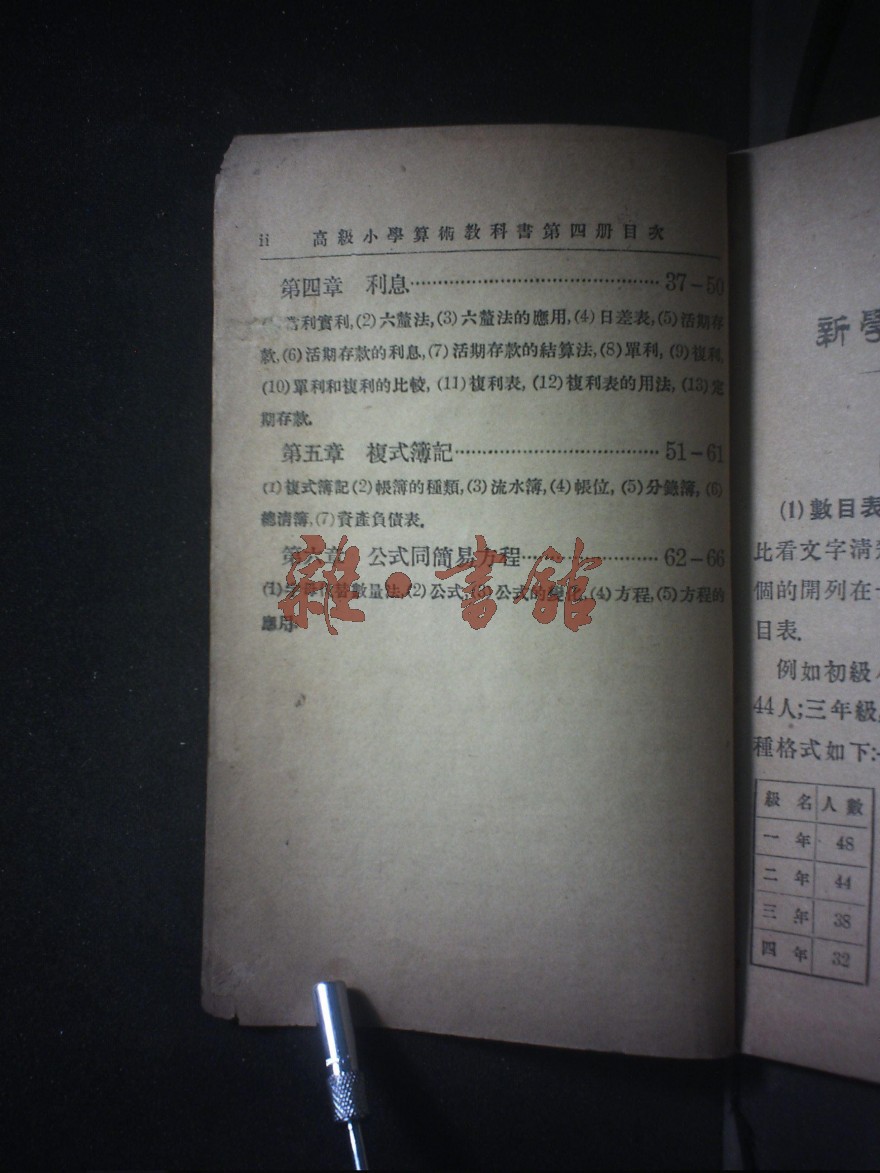 ii 高級小學算術教科書第四册目次
第四章 利息 37–50
利實利,(2)六釐法,(3)六釐法的應用,(4)日差表,(5)活期存
款,(6)活期存款的利息,(7)活期存款的結算法,(8)單利,(9)複利,
(10)單利和複利的比較,(11)複利表,(12)複利表的用法,(13)定
期存款.
第五章 複式簿記 51–61
(1)複式簿記(2)帳簿的種類,(3)流水簿,(4)帳位,(5)分錄簿,(6)
總清簿,(7)資產負債表.
第六章 公式同簡易方程 62–66
(1)字母代替數量法,(2)公式,(3)公式的變化,(4)方程,(5)方程的
應用.
雜·書館
新學
(1)數目表
比看文字清楚
個的開列在
目表.
例如初級
44人;三年級,
種格式如下:
級名 人數
一年 48
二年 44
三年 38
四年 32